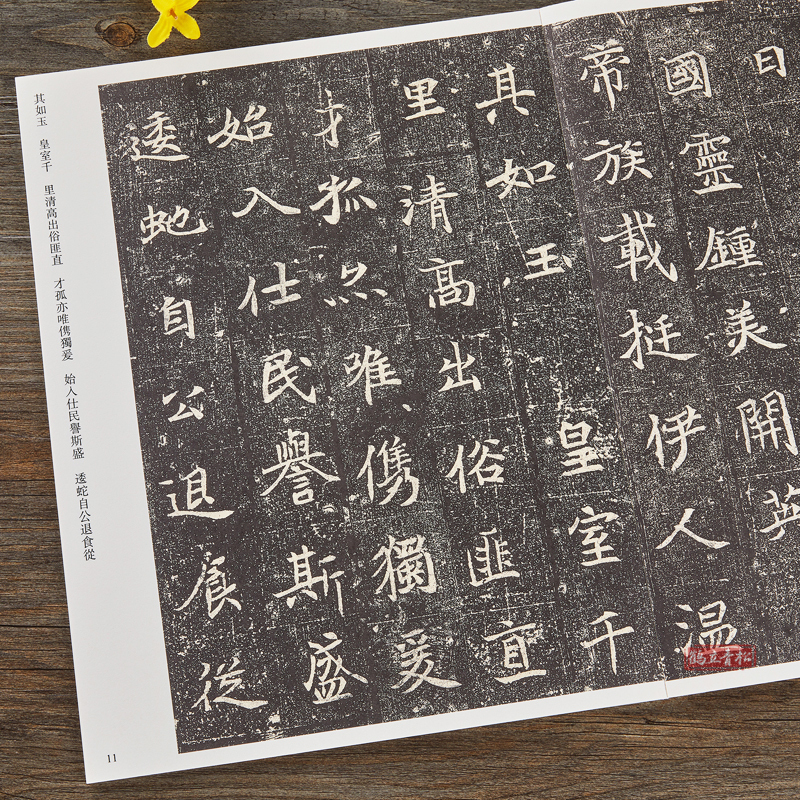 日
國靈鍾美開英
帝族載挺伊人温
其如玉 皇室千
里清高出俗匪直
才孤亦唯儁獨爰
始入仕民譽斯盛
逶虵自公退食從
其如玉 皇室千 里清高出俗匪直 才孤亦唯儁獨爰 始入仕民譽斯盛 逶蛇自公退食從
11
鹤立青松